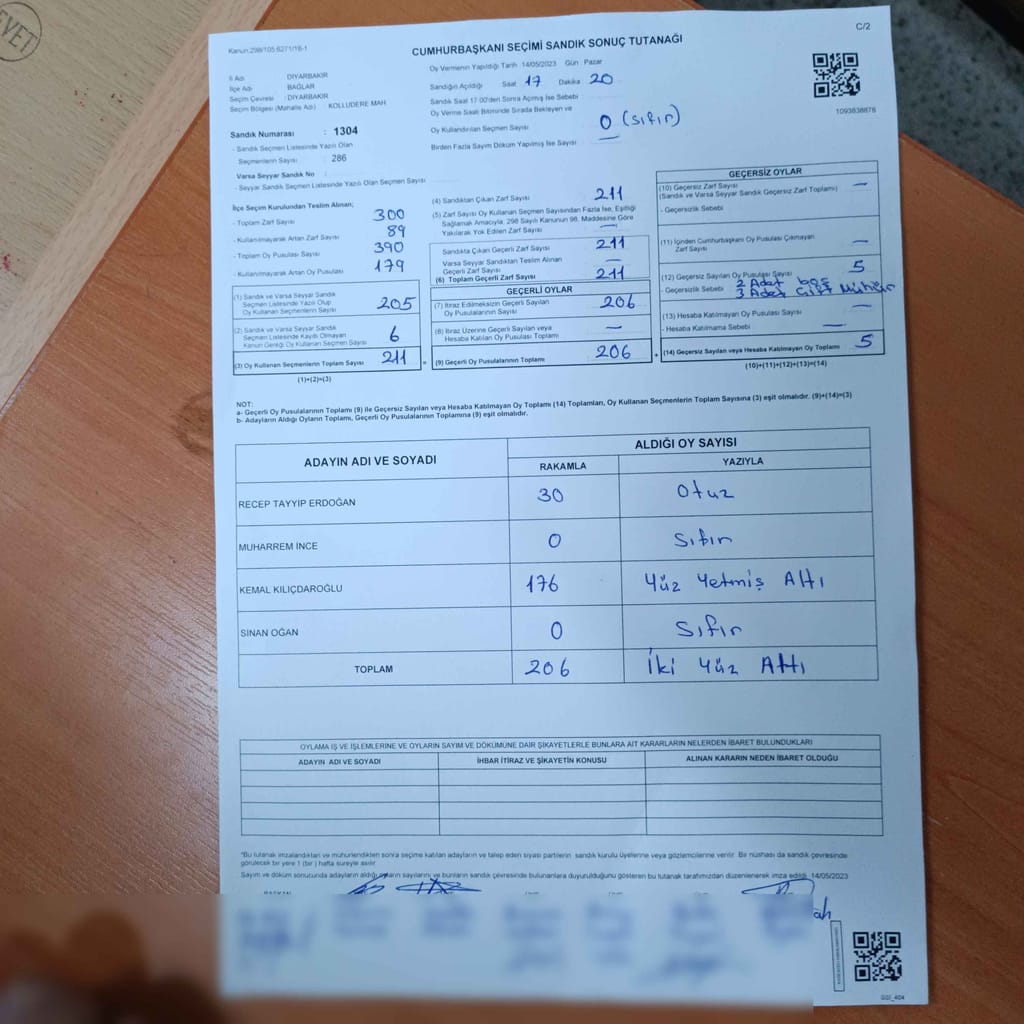 EVET
C/2
Kanun:298/105 6271/16-1
CUMHURBAŞKANI SEÇİMİ SANDIK SONUÇ TUTANAĞI
Oy Vermenin Yapıldığı Tarih :14/05/2023 Gün : Pazar
İl Adı : DİYARBAKIR
İlçe Adı : BAĞLAR
Seçim Çevresi : DİYARBAKIR
Seçim Bölgesi (Mahalle Adı) : KOLLUDERE MAH.
Sandığın Açıldığı Saat 17 Dakika 20
Sandık Saat 17.00'den Sonra Açılmış İse Sebebi
Oy Verme Saati Bitiminde Sırada Bekleyen ve
Oy Kullandırılan Seçmen Sayısı 0 (sıfır)
Birden Fazla Sayım Döküm Yapılmış İse Sayısı
1093838878
Sandık Numarası : 1304
- Sandık Seçmen Listesinde Yazılı Olan
Seçmenlerin Sayısı : 286
Varsa Seyyar Sandık No :
- Seyyar Sandık Seçmen Listesinde Yazılı Olan Seçmen Sayısı
İlçe Seçim Kurulundan Teslim Alınan;
- Toplam Zarf Sayısı 300
- Kullanılmayarak Artan Zarf Sayısı 89
- Toplam Oy Pusulası Sayısı 390
- Kullanılmayarak Artan Oy Pusulası 179
(1) Sandık ve Varsa Seyyar Sandık
Seçmen Listesinde Yazılı Olup
Oy Kullanan Seçmenlerin Sayısı 205
(2) Sandık ve Varsa Seyyar Sandık
Seçmen Listesinde Kayıtlı Olmayan
Kanun Gereği Oy Kullanan Seçmen Sayısı 6
(3) Oy Kullanan Seçmenlerin Toplam Sayısı 211 =
(1)+(2)=(3)
(4) Sandıktan Çıkan Zarf Sayısı 211
(5) Zarf Sayısı Oy Kullanan Seçmen Sayısından Fazla İse, Eşitliği
Sağlamak Amacıyla; 298 Sayılı Kanunun 98. Maddesine Göre
Yakılarak Yok Edilen Zarf Sayısı —
Sandıkta Çıkan Geçerli Zarf Sayısı 211
Varsa Seyyar Sandıktan Teslim Alınan
Geçerli Zarf Sayısı —
(6) Toplam Geçerli Zarf Sayısı 211
GEÇERLİ OYLAR
(7) İtiraz Edilmeksizin Geçerli Sayılan
Oy Pusulalarının Sayısı 206
(8) İtiraz Üzerine Geçerli Sayılan veya
Hesaba Katılan Oy Pusulası Toplamı —
(9) Geçerli Oy Pusulalarının Toplamı 206 +
GEÇERSİZ OYLAR
(10) Geçersiz Zarf Sayısı —
(Sandık ve Varsa Seyyar Sandık Geçersiz Zarf Toplamı)
- Geçersizlik Sebebi
(11) İçinden Cumhurbaşkanı Oy Pusulası Çıkmayan
Zarf Sayısı —
(12) Geçersiz Sayılan Oy Pusulası Sayısı 5
- Geçersizlik Sebebi 2 Adet boş
3 Adet Çift Mühür
(13) Hesaba Katılmayan Oy Pusulası Sayısı —
- Hesaba Katılmama Sebebi —
(14) Geçersiz Sayılan veya Hesaba Katılmayan Oy Toplamı 5
(10)+(11)+(12)+(13)=(14)
NOT:
a- Geçerli Oy Pusulalarının Toplamı (9) ile Geçersiz Sayılan veya Hesaba Katılmayan Oy Toplamı (14) Toplamları, Oy Kullanan Seçmenlerin Toplam Sayısına (3) eşit olmalıdır. (9)+(14)=(3)
b- Adayların Aldığı Oyların Toplamı, Geçerli Oy Pusulalarının Toplamına (9) eşit olmalıdır.
ADAYIN ADI VE SOYADI
ALDIĞI OY SAYISI
RAKAMLA YAZIYLA
RECEP TAYYIP ERDOĞAN 30 Otuz
MUHARREM İNCE 0 Sıfır
KEMAL KILIÇDAROĞLU 176 Yüz Yetmiş Altı
SİNAN OĞAN 0 Sıfır
TOPLAM 206 İki Yüz Altı
OYLAMA İŞ VE İŞLEMLERİNE VE OYLARIN SAYIM VE DÖKÜMÜNE DAİR ŞİKAYETLERLE BUNLARA AİT KARARLARIN NELERDEN İBARET BULUNDUKLARI
ADAYIN ADI VE SOYADI İHBAR İTİRAZ VE ŞİKAYETİN KONUSU ALINAN KARARIN NEDEN İBARET OLDUĞU
"Bu tutanak imzalandıktan ve mühürlendikten sonra seçime katılan adayların ve talep eden siyasi partilerin sandık kurulu üyelerine veya gözlemcilerine verilir. Bir nüshası da sandık çevresinde
görülecek bir yere 1 (bir) hafta süreyle asılır.
Sayım ve döküm sonucunda adayların aldığı oyların sayılarını ve bunların sandık çevresinde bulunanlara duyurulduğunu gösteren bu tutanak tarafımızdan düzenlenerek imza edildi. 14/05/2023
BAŞKAN
ah